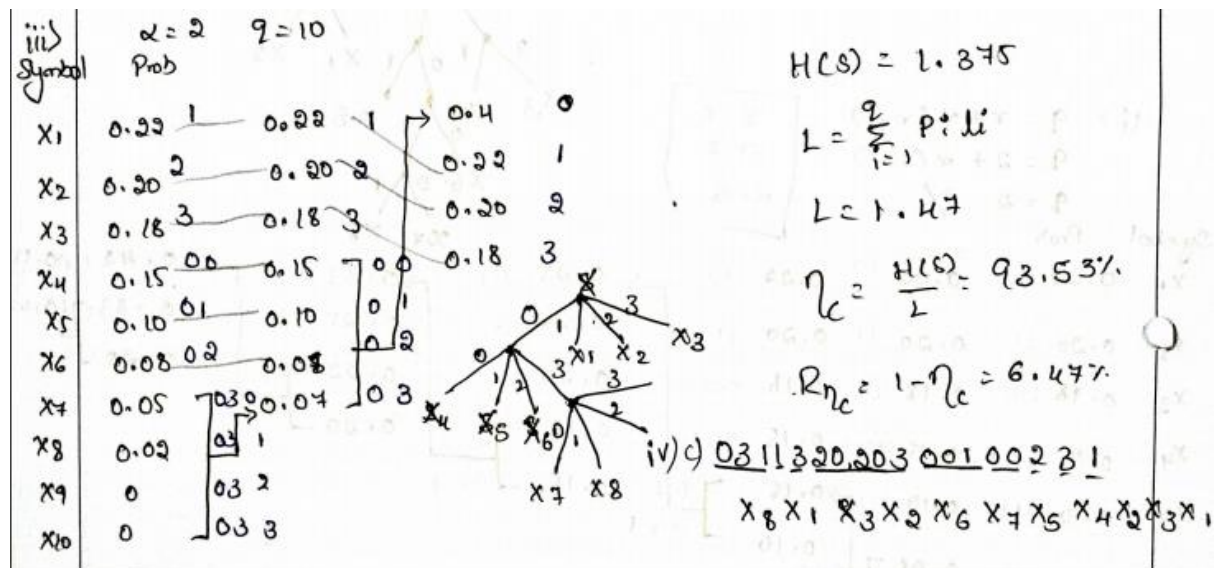 iii) α = 2 q = 10
Symbol Prob
X1 0.22 1 0.22 1 0.4 0
X2 0.20 2 0.20 2 0.22 1
X3 0.18 3 0.18 3 0.20 2
X4 0.15 00 0.15 00 0.18 3
X5 0.10 01 0.10 01
X6 0.08 02 0.08 02
X7 0.05 030 0.07 03
X8 0.02 031
X9 0 032
X10 0 033
0 1 2 3
X1 X2 X3
0 1 2 3
X4 X5 X6
0 1 2 3
X7 X8
H(S) = 1.375
L = q Σ i=1 Pi li
L = 1.47
ηc = H(S)/L = 93.53%
Rηc = 1-ηc = 6.47%
iv) c) 031 1 3 2 02 030 01 00 2 3 1
X8 X1 X3 X2 X6 X7 X5 X4 X2 X3 X1